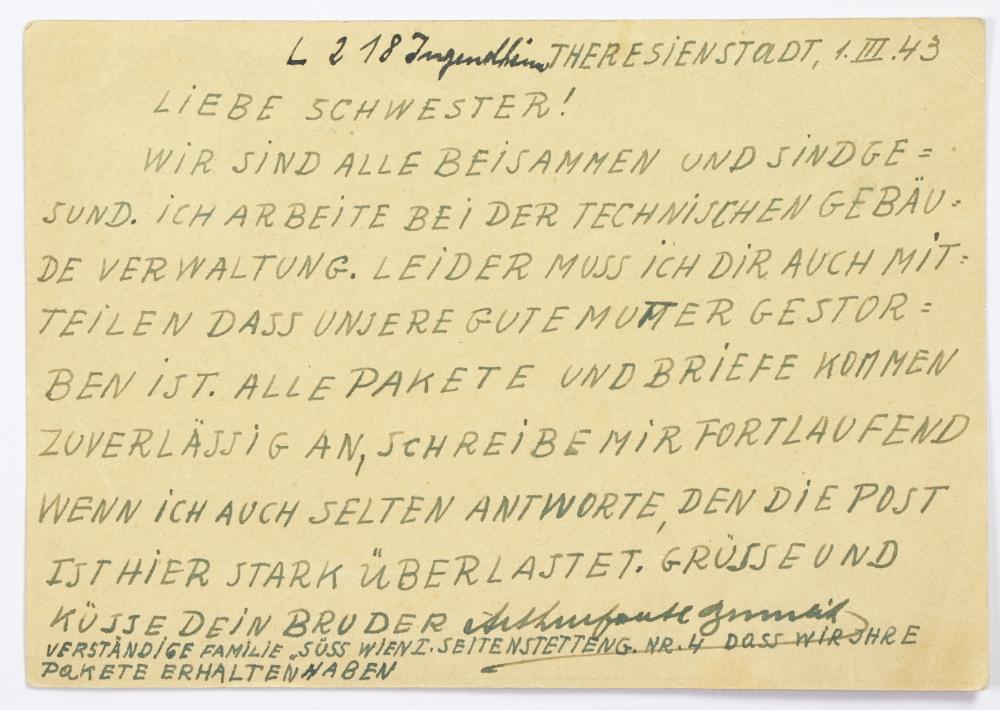 L 218 Jugendheim THERESIENSTADT, 1.III.43
LIEBE SCHWESTER!
WIR SIND ALLE BEISAMMEN UND SIND GE=
SUND. ICH ARBEITE BEI DER TECHNISCHEN GEBÄU=
DE VERWALTUNG. LEIDER MUSS ICH DIR AUCH MIT=
TEILEN DASS UNSERE GUTE MUTTER GESTOR=
BEN IST. ALLE PAKETE UND BRIEFE KOMMEN
ZUVERLÄSSIG AN, SCHREIBE MIR FORTLAUFEND
WENN ICH AUCH SELTEN ANTWORTE, DEN DIE POST
IST HIER STARK ÜBERLASTET. GRÜSSE UND
KÜSSE DEIN BRUDER
VERSTÄNDIGE FAMILIE „SÜSS WIEN I. SEITENSTETTENG. NR. 4 DASS WIR IHRE
PAKETE ERHALTEN HABEN